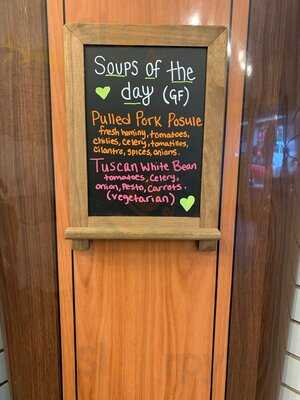 Soups of the
day (GF)
Pulled Pork Posule
fresh hominy, tomatoes,
chilies, celery, tomatillos,
cilantro, spices, onions.
Tuscan White Bean
tomatoes, celery,
onion, pesto, carrots.
(vegetarian)